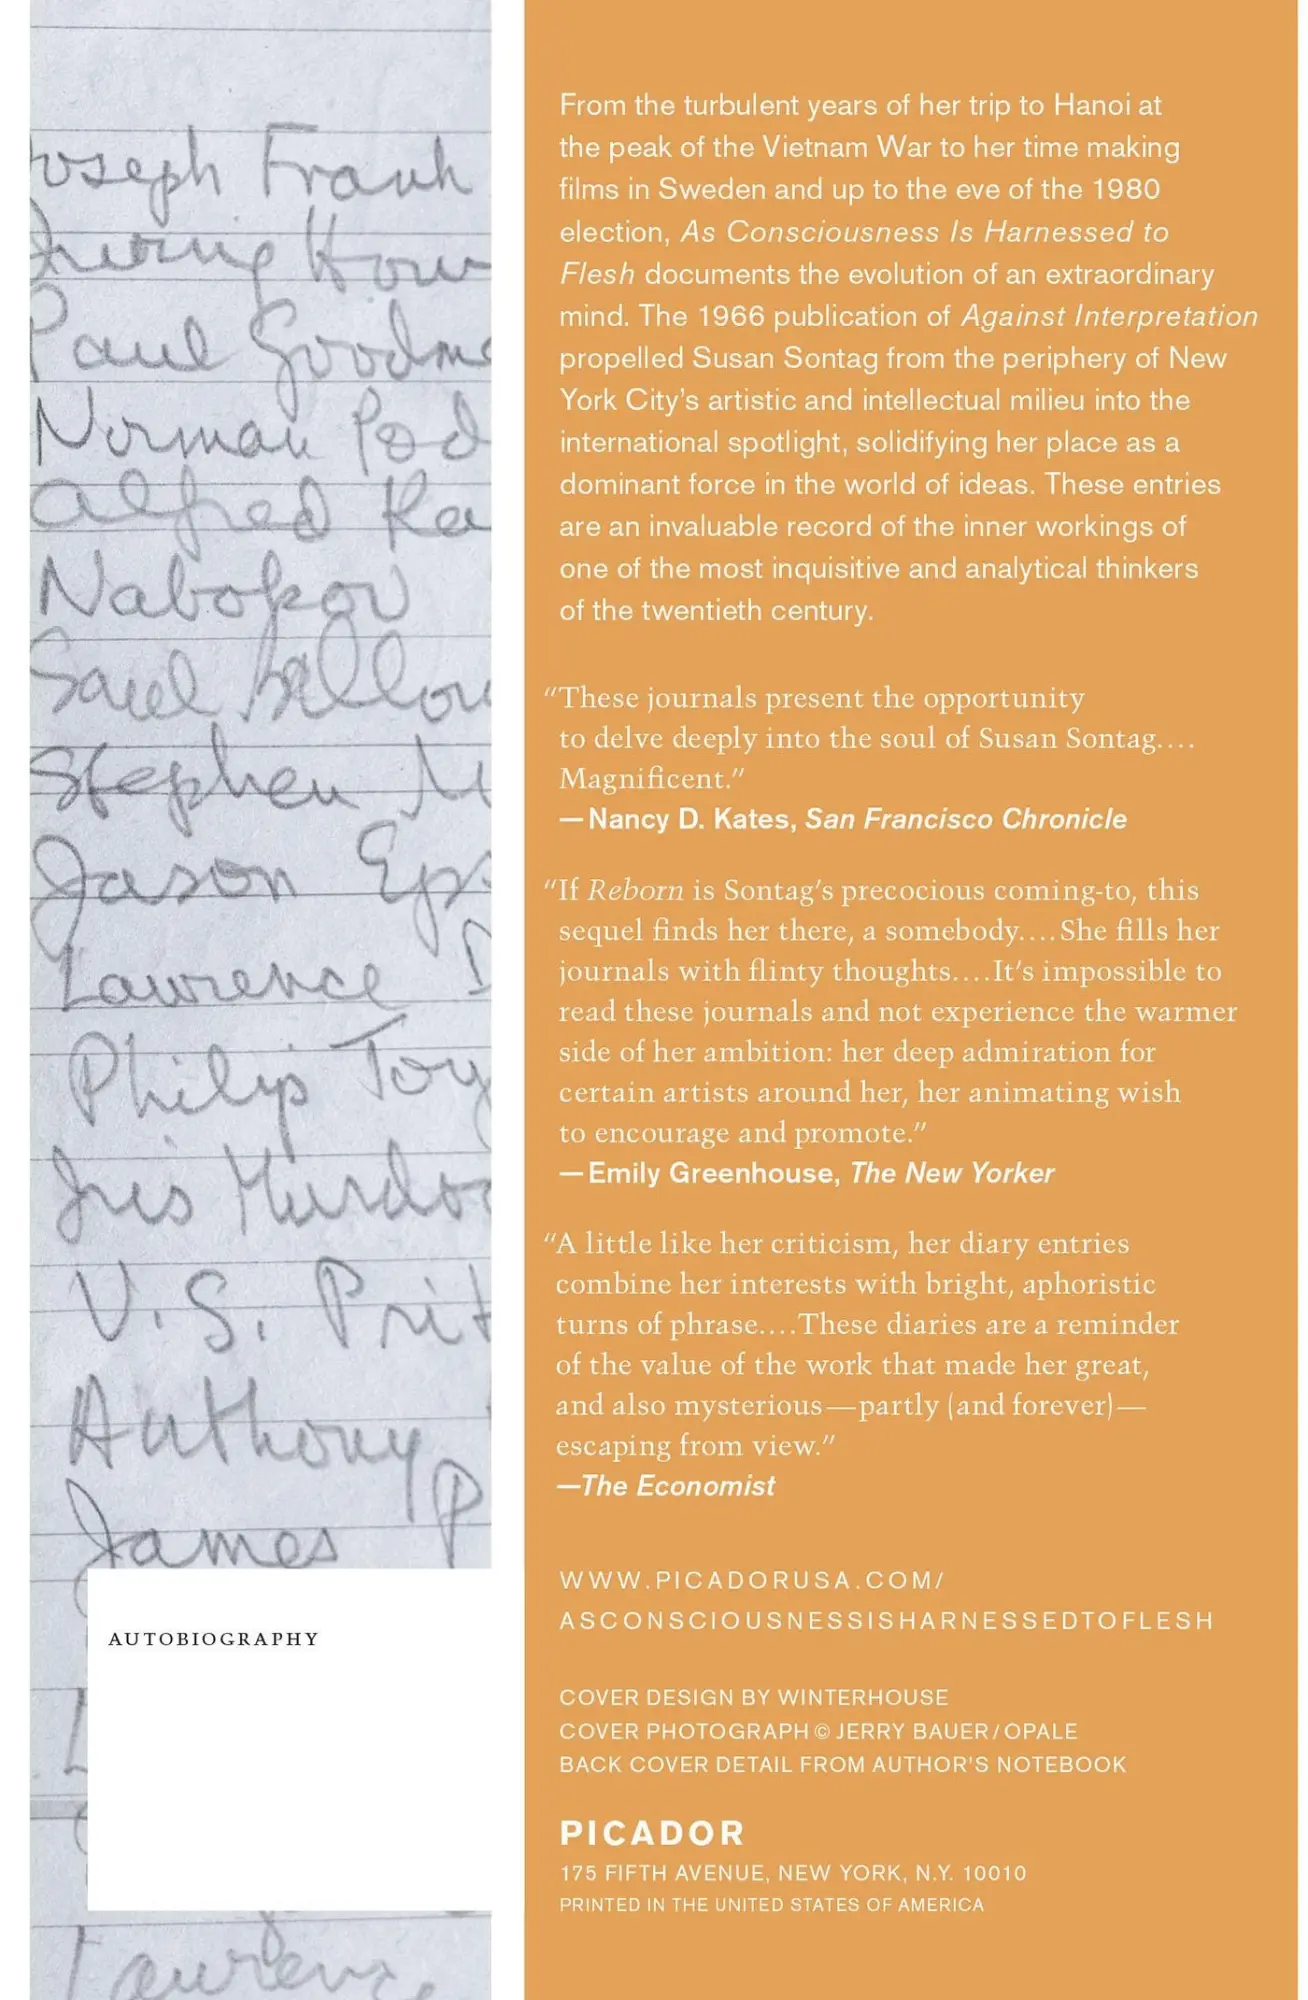 Joseph Frank
Irving How
Paul Goodm
Norman Pod
Alfred Ka
Nabokov
Saul Bellow
Stephen M
Jason Eps
Lawrence D
Philip Toy
Iris Murdo
V. S. Prit
Anthony P
James
Lawrenc
AUTOBIOGRAPHY
From the turbulent years of her trip to Hanoi at
the peak of the Vietnam War to her time making
films in Sweden and up to the eve of the 1980
election, As Consciousness Is Harnessed to
Flesh documents the evolution of an extraordinary
mind. The 1966 publication of Against Interpretation
propelled Susan Sontag from the periphery of New
York City’s artistic and intellectual milieu into the
international spotlight, solidifying her place as a
dominant force in the world of ideas. These entries
are an invaluable record of the inner workings of
one of the most inquisitive and analytical thinkers
of the twentieth century.
“These journals present the opportunity
to delve deeply into the soul of Susan Sontag....
Magnificent.”
—Nancy D. Kates, San Francisco Chronicle
“If Reborn is Sontag’s precocious coming-to, this
sequel finds her there, a somebody....She fills her
journals with flinty thoughts....It’s impossible to
read these journals and not experience the warmer
side of her ambition: her deep admiration for
certain artists around her, her animating wish
to encourage and promote.”
—Emily Greenhouse, The New Yorker
“A little like her criticism, her diary entries
combine her interests with bright, aphoristic
turns of phrase....These diaries are a reminder
of the value of the work that made her great,
and also mysterious—partly (and forever)—
escaping from view.”
—The Economist
WWW.PICADORUSA.COM/
ASCONSCIOUSNESSISHARNESSEDTOFLESH
COVER DESIGN BY WINTERHOUSE
COVER PHOTOGRAPH © JERRY BAUER/OPALE
BACK COVER DETAIL FROM AUTHOR’S NOTEBOOK
PICADOR
175 FIFTH AVENUE, NEW YORK, N.Y. 10010
PRINTED IN THE UNITED STATES OF AMERICA